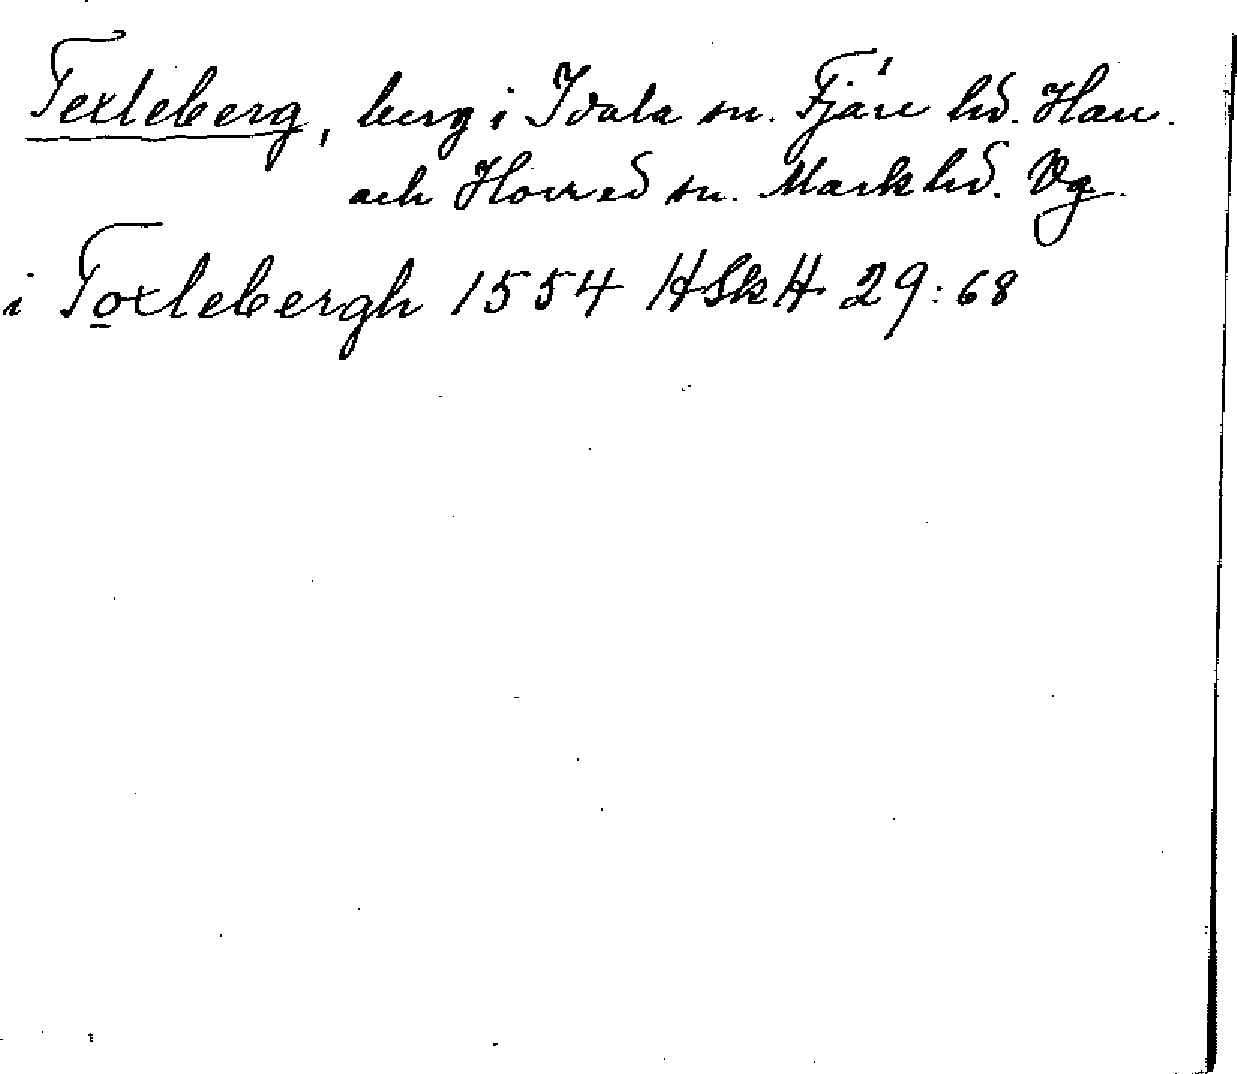 Texleberg, berg i Idala sn. Fjäre hd. Hall.
och Horred sn. Mark hd. Vg.
i Toxlebergh 1554 HSkH 29:68